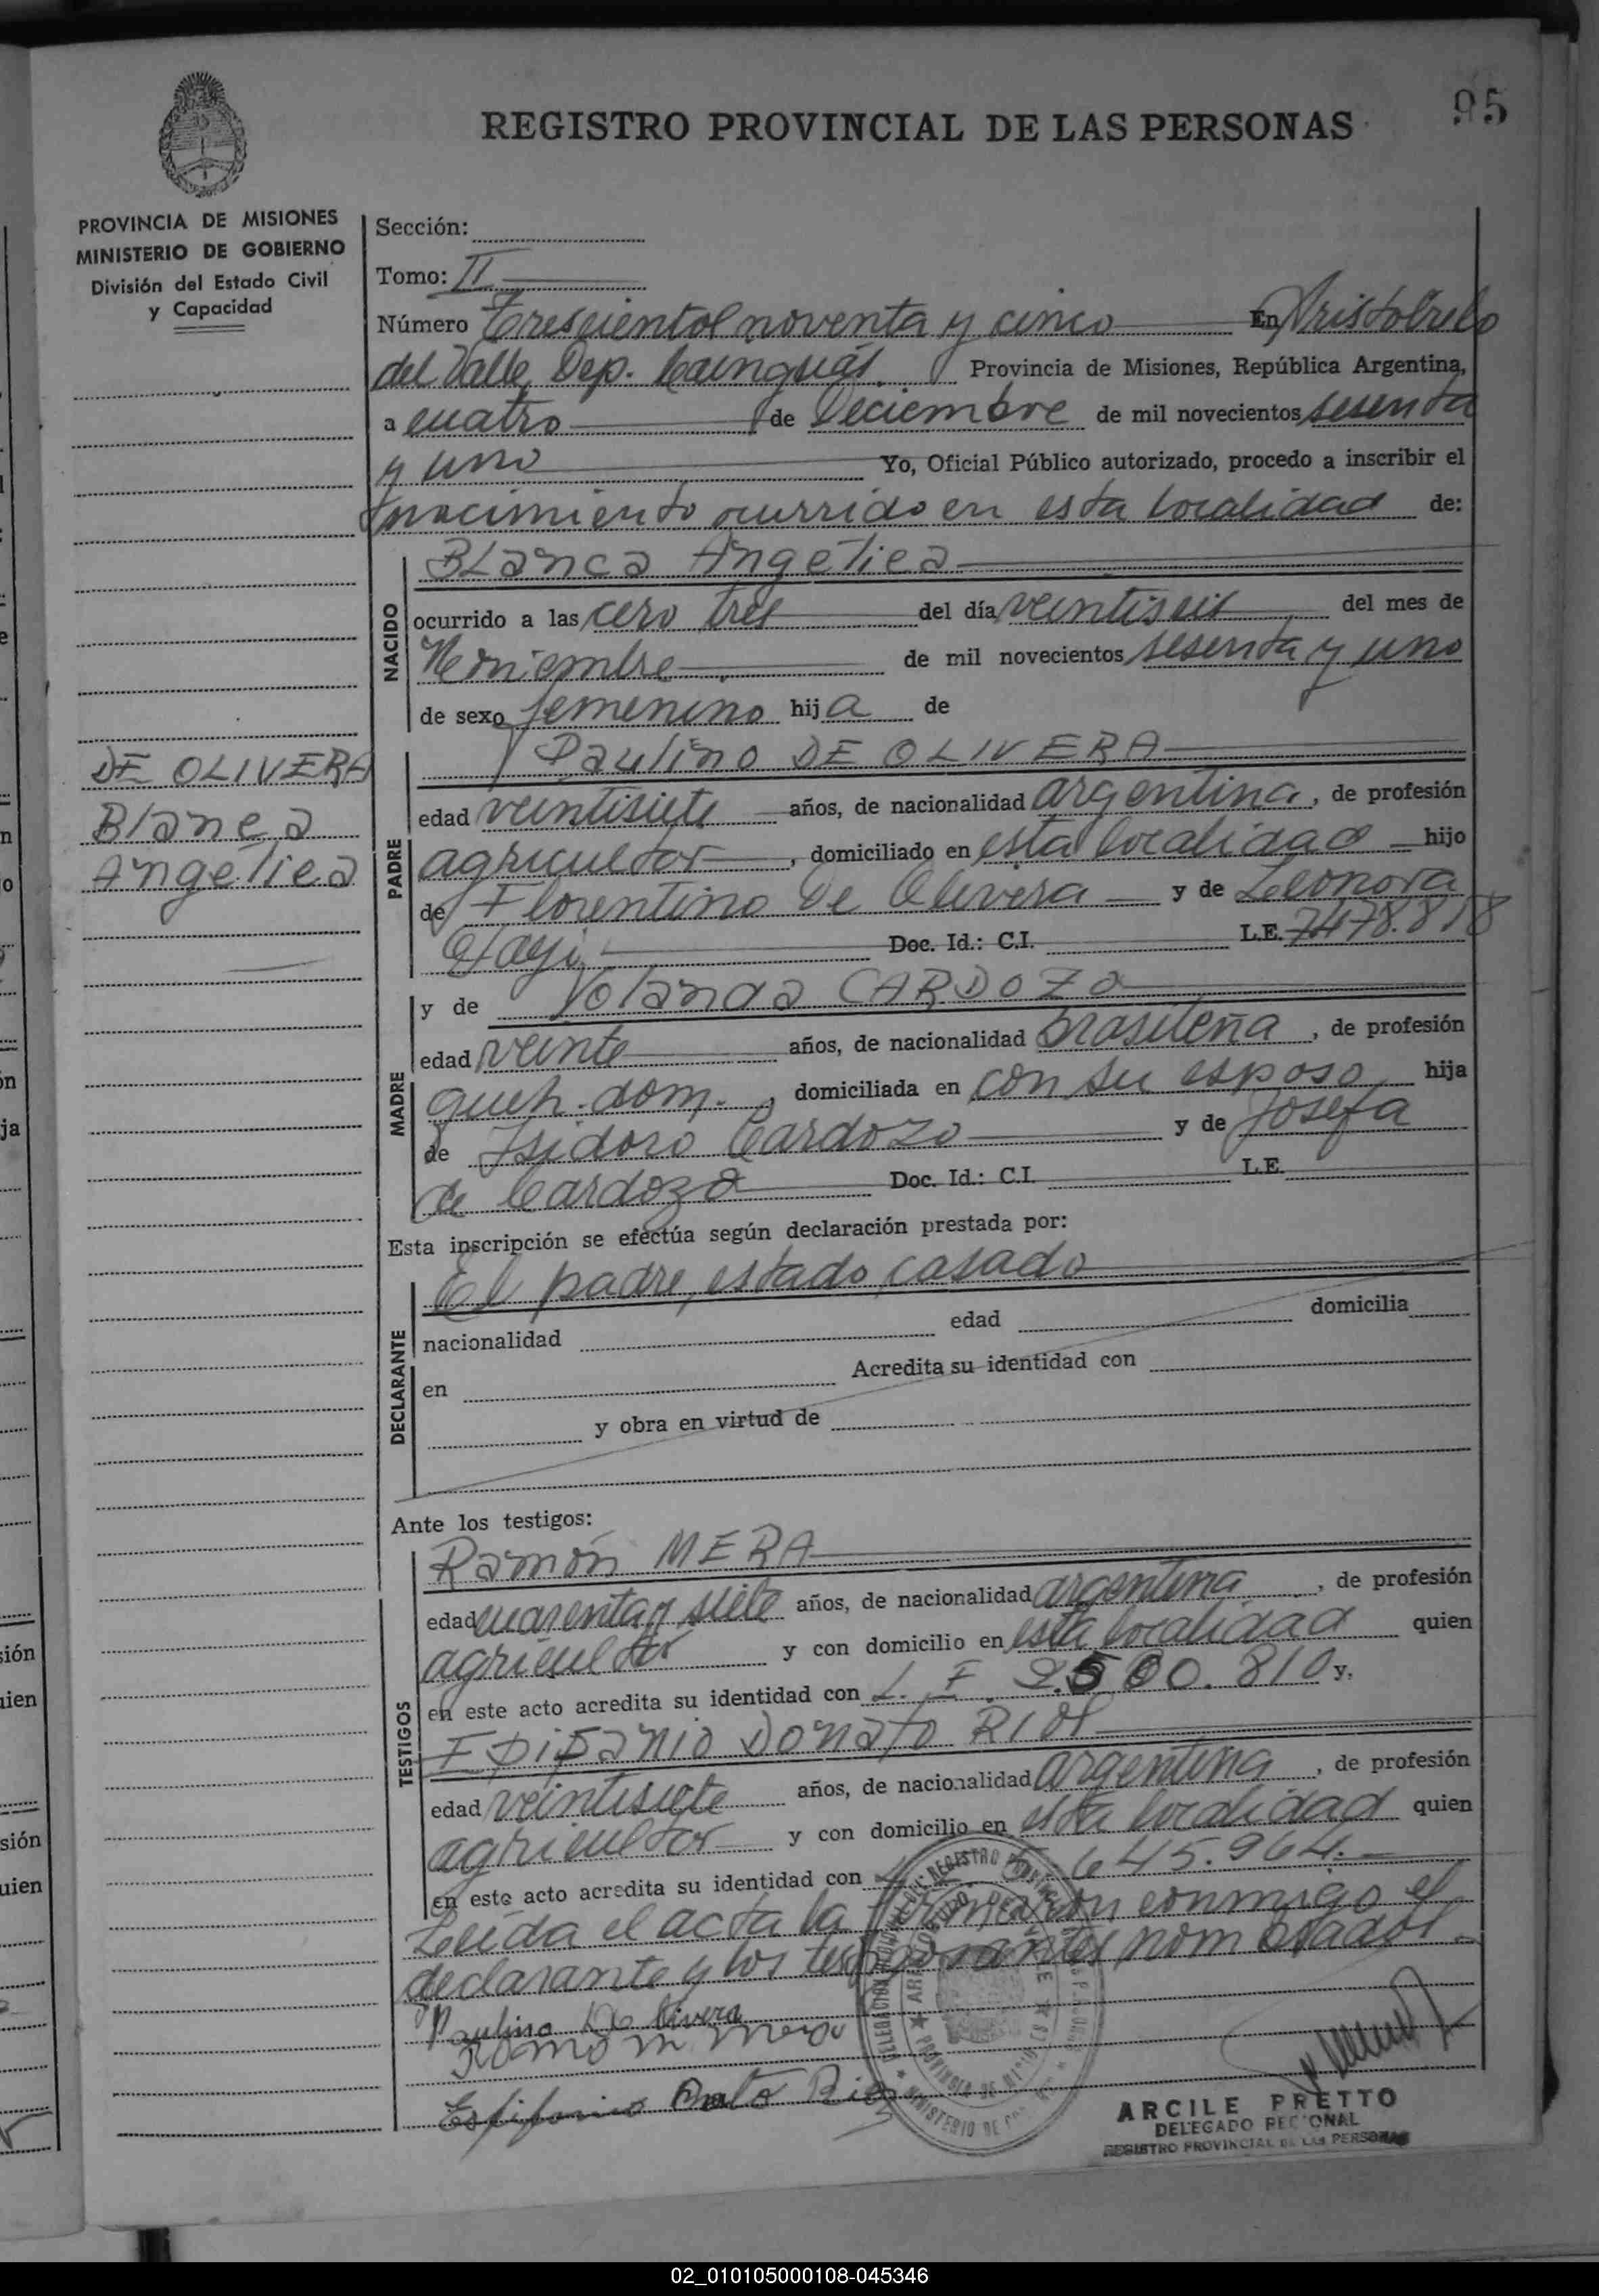 95
REGISTRO PROVINCIAL DE LAS PERSONAS
PROVINCIA DE MISIONES
MINISTERIO DE GOBIERNO
División del Estado Civil
y Capacidad
Sección:
Tomo: II
Número Trescientos noventa y cinco En Aristobulo
del Valle, Dep. Cainguás. Provincia de Misiones, República Argentina,
a cuatro de Deciembre de mil novecientos sesenta
y uno Yo, Oficial Público autorizado, procedo a inscribir el
nacimiento ocurrido en esta localidad de:
NACIDO
Blanca Angélica
ocurrido a las cero tres del día veintiseis del mes de
Noviembre de mil novecientos sesenta y uno
de sexo femenino hija de
DE OLIVERA
Blanca
Angélica
PADRE
Paulino DE OLIVERA
edad veintisiete años, de nacionalidad argentina, de profesión
agricultor, domiciliado en esta localidad hijo
de Florentino De Olivera y de Leonora
Doc. Id.: C.I. L.E. 7478.818
MADRE
y de Yolanda CARDOZO
edad veinte años, de nacionalidad brasileña, de profesión
queh. dom., domiciliada en con su esposo hija
de Isidoro Cardozo y de Josefa
de Cardozo Doc. Id.: C.I. L.E.
Esta inscripción se efectúa según declaración prestada por:
DECLARANTE
El padre, estado, casado
nacionalidad edad domicilia
en Acredita su identidad con
y obra en virtud de
Ante los testigos:
TESTIGOS
Ramón MERA
edad cuarenta y siete años, de nacionalidad argentina, de profesión
agricultor y con domicilio en esta localidad quien
en este acto acredita su identidad con L. E. 810 y,
Epifanio Donato RIOS
edad veintisiete años, de nacionalidad argentina, de profesión
agricultor y con domicilio en esta localidad quien
en este acto acredita su identidad con 645.964.
Leida el acta la firmaron conmigo el
declarante y los testimoniantes nombrados.
Paulino De Olivera
Ramon Mera
Epifanio Donato Rios
ARCILE PRETTO
DELEGADO REGIONAL
REGISTRO PROVINCIAL DE LAS PERSONAS
02_010105000108-045346